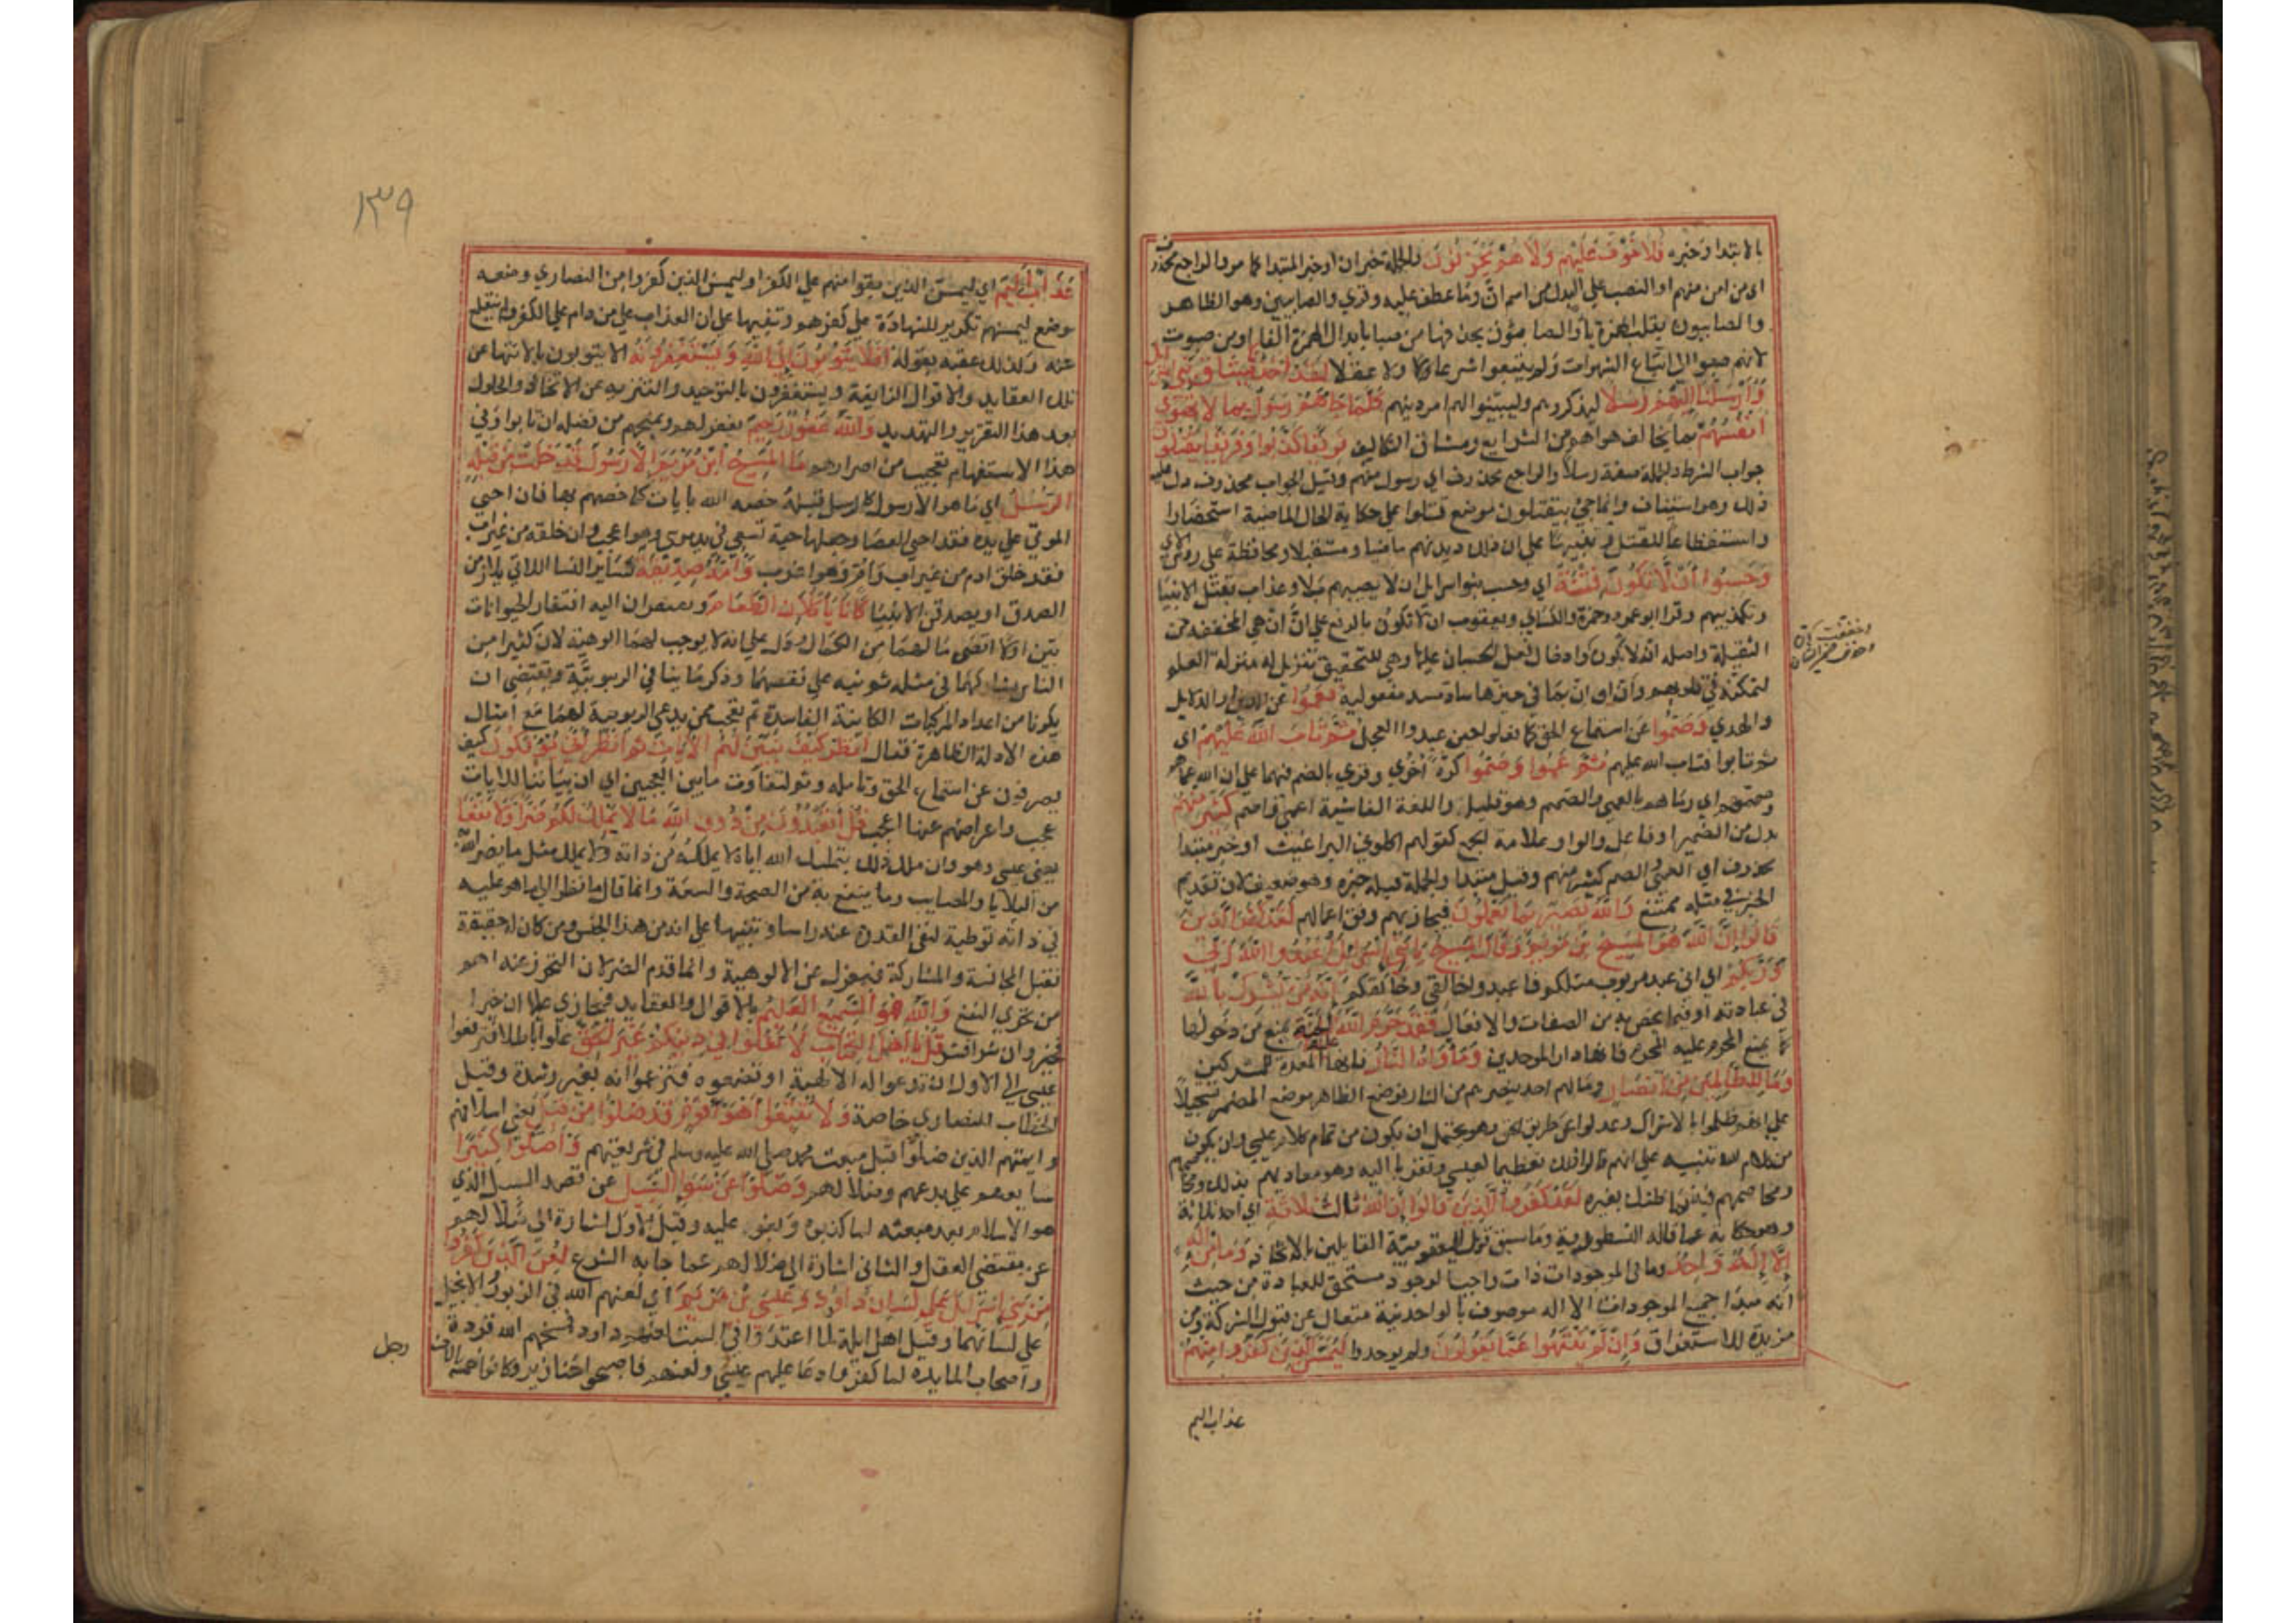 بالابتدا وخبره فَلَا خَوْفٌ عَلَيْهِم وَلَا هُمْ يَحْزَنُونَ والجملة خبر ان او خبر المبتدا كما مر والراجع محذوف
اى من امن منهم او النصب على البدل من اسم ان وما عطف عليه وقري والصابيين وهو الظاهر
والصابيون بقلب الهمزة ياء والصابون بحذفها من صبا بابدال الهمزة الفا او من صبوت
لانهم صبوا الى اتباع الشهوات ولم يتبعوا شرعا ولا عقلا لَقَدْ أَخَذْنَا مِيثَاقَ بَنِي إسرائيل
وَأَرْسَلْنَا إِلَيْهِمْ رُسُلًا ليذكروهم وليبينوا لهم امر دينهم كُلَّمَا جَاءَهُمْ رَسُولٌ بِمَا لَا تَهْوَى
أَنْفُسُهُمْ بما يخالف هواهم من الشرايع ومشاق التكاليف فَرِيقًا كَذَّبُوا وَفَرِيقًا يَقْتُلُونَ
جواب الشرط والجملة صفة رسلا والراجع محذوف اي رسول منهم وقيل الجواب محذوف دل عليه
ذلك وهو استيناف وانما جئ بيقتلون موضع قتلوا على حكاية الحال الماضية استحضارا
واستفظاعا للقتل وتنبيها على ان ذلك ديدنهم ماضيا ومستقبلا ومحافظة على روس الاي
وَحَسِبُوا أَنْ لَا تَكُونَ فِتْنَةٌ اي وحسب بنوا اسرايل ان لا يصيبهم بلا وعذاب بقتل الانبيا
وتكذيبهم وقرا ابو عمرو وحمزة والكسايي ويعقوب ان لا تكونُ بالرفع على ان ان هي المخففة من
الثقيلة واصله انه لا تكون وادخال فعل الحسبان عليها وهي للتحقيق تنزيل له منزلة العلم
لتمكنه في قلوبهم وان او ان بما في حيزها ساد مسد مفعوليه فَعَمُوا عن الدين او الدلايل
والهدي وَصَمُّوا عن استماع الحق كما فعلوا حين عبدوا العجل ثُمَّ تَابَ اللَّهُ عَلَيْهِمْ اي
ثم تابوا فتاب الله عليهم ثُمَّ عَمُوا وَصَمُّوا كرة أخري وقري بالضم فيهما على ان الله عماهم
وصمهم اي رماهم بالعمي والصمم وهو قليل واللغة الفاشية اعمي واصم كَثِيرٌ مِنْهُمْ
بدل من الضمير او فاعل والواو علامة الجمع كقولهم اكلوني البراغيث او خبر مبتدا
محذوف اي العمي والصم كثير منهم وقيل مبتدا والجملة قبله خبره وهو ضعيف لان تقديم
الخبر في مثله ممتنع وَاللَّهُ بَصِيرٌ بِمَا يَعْمَلُونَ فيجازيهم وفق اعمالهم لَقَدْ كَفَرَ الَّذِينَ
قَالُوا إِنَّ اللَّهَ هُوَ الْمَسِيحُ بْنُ مَرْيَمَ وَقَالَ الْمَسِيحُ يَا بَنِي إِسْرَائِيلَ اعْبُدُوا اللَّهَ رَبِّي
وَرَبَّكُمْ اي اني عبد مربوب مثلكم فاعبدوا خالقي وخالقكم إِنَّهُ مَنْ يُشْرِكْ بِاللَّهِ
في عبادته او فيما يختص به من الصفات والافعال فَقَدْ حَرَّمَ اللَّهُ عَلَيْهِ الْجَنَّةَ يمنع من دخولها
كما يمنع المحرم عليه المحرم فانها دار الموحدين وَمَأْوَاهُ النَّارُ فانها المعدة للمشركين
وَمَا لِلظَّالِمِينَ مِنْ أَنْصَارٍ وما لهم احد ينصرهم من النار فوضع الظاهر موضع المضمر تسجيلا
على انهم ظلموا بالاشراك وعدلوا عن طريق الحق وهو يحتمل ان يكون من تمام كلام عيسي وان يكون
من كلام الله تنبيه على انهم قالوا ذلك تعظيما لعيسي وتقربا اليه وهو معاديهم بذلك ومخاصمهم
ومخاصمهم فيه فما ظنك بغيره لَقَدْ كَفَرَ الَّذِينَ قَالُوا إِنَّ اللَّهَ ثَالِثُ ثَلَاثَةٍ اي احد ثلاثة
وهو حكاية عما قاله النسطورية وما سبق قول اليعقوبية القايلين بالاتحاد وَمَا مِنْ إِلَهٍ
إِلَّا إِلَهٌ وَاحِدٌ وما في الموجودات ذات واجب الوجود مستحق للعبادة من حيث
انه مبدا جميع الموجودات الا اله موصوف بالواحدنية متعال عن قبول الشركة ومن
مزيدة للاستغراق وَإِنْ لَمْ يَنْتَهُوا عَمَّا يَقُولُونَ ولم يوحدوا لَيَمَسَّنَّ الَّذِينَ كَفَرُوا مِنْهُمْ
عذاب اليم
وخففت ان
وحذف ضمير الشان
١٣٩
عَذَابٌ أَلِيمٌ اي ليمسن الذين بقوا منهم على الكفر او ليمسن الذين كفروا من النصاري وضعه
موضع ليمسنهم تكرير للشهادة على كفرهم وتنبيها على ان العذاب على من دام على الكفر ولم ينقلع
عنه ولذلك عقبه بقوله أَفَلَا يَتُوبُونَ إِلَى اللَّهِ وَيَسْتَغْفِرُونَهُ الا يتوبون بالانتها عن
تلك العقايد والاقوال الزايغة ويستغفرون بالتوحيد والتنزيه عن الاتحاد والحلول
بعد هذا التقرير والتهديد وَاللَّهُ غَفُورٌ رَحِيمٌ يغفر لهم ويمنحهم من فضله ان تابوا وفي
هذا الاستفهام تعجيب من اصرارهم مَا الْمَسِيحُ ابْنُ مَرْيَمَ إِلَّا رَسُولٌ قَدْ خَلَتْ مِنْ قَبْلِهِ
الرُّسُلُ اي ما هو الا رسول كالرسل قبله خصه الله بايات كما خصهم بها فان احيي
الموتي على يده فقد احيى العصا وجعلها حية تسعي في يد موسي وهو اعجب وان خلقه من غير اب
فقد خلق ادم من غير اب وام وهو اغرب وَأُمُّهُ صِدِّيقَةٌ كساير النسا اللاتي يلازمن
الصدق او يصدقن الانبيا كَانَا يَأْكُلَانِ الطَّعَامَ ويفتقران اليه افتقار الحيوانات
بين اولا اقصي ما لهما من الكمال ودل على انه لا يوجب لهما الوهية لان كثيرا من
الناس يشاركهما في مثله ثم نبه على نقصهما وذكر ما ينافي الربوبية ويقتضي ان
يكونا من اعداد المركبات الكاينة الفاسدة ثم تعجب ممن يدعي الربوبية لهما مع امثال
هذه الادلة الظاهرة فقال انْظُرْ كَيْفَ نُبَيِّنُ لَهُمُ الْآيَاتِ ثُمَّ انْظُرْ أَنَّى يُؤْفَكُونَ كيف
يصرفون عن استماع الحق وتامله وثم لتفاوت ما بين العجبين اي ان بياننا للايات
عجب واعراضهم عنها اعجب قُلْ أَتَعْبُدُونَ مِنْ دُونِ اللَّهِ مَا لَا يَمْلِكُ لَكُمْ ضَرًّا وَلَا نَفْعًا
يعني عيسي وهو وان ملك ذلك بتمليك الله اياه لا يملكه من ذاته ولا يملك مثل ما يضر الله به
من البلايا والمصايب وما ينفع به من الصحة والسعة وانما قال ما نظرا الى ما هو عليه
في ذاته توطية لنفي القدرة عنه راسا وتنبيها على انه من هذا الجنس ومن كان له حقيقة
تقبل المجانسة والمشاركة فبمعزل عن الالوهية وانما قدم الضر لان التحرز عنه اهم
من تحري النفع وَاللَّهُ هُوَ السَّمِيعُ الْعَلِيمُ بالاقوال والعقايد فيجازي عليها ان خيرا
فخير وان شرا فشر قُلْ يَا أَهْلَ الْكِتَابِ لَا تَغْلُوا فِي دِينِكُمْ غَيْرَ الْحَقِّ غلوا باطلا فترفعوا
عيسي الى الاول ان تدعوا له الالهية او تضعوه فتزعموا انه لغير رشدة وقيل
الخطاب للنصاري خاصة وَلَا تَتَّبِعُوا أَهْوَاءَ قَوْمٍ قَدْ ضَلُّوا مِنْ قَبْلُ يعني اسلافهم
وايمتهم الذين ضلوا قبل مبعث محمد صلى الله عليه وسلم في شريعتهم وَأَضَلُّوا كَثِيرًا
شايعهم على بدعهم وضلالهم وَضَلُّوا عَنْ سَوَاءِ السَّبِيلِ عن قصد السبيل الذي
هو الاسلام بعد مبعثه لما كذبوه وبغوا عليه وقيل الاول اشارة الى ضلالهم
عن مقتضي العقل والثاني اشارة الى ضلالهم عما جا به الشرع لُعِنَ الَّذِينَ كَفَرُوا
مِنْ بَنِي إِسْرَائِيلَ عَلَى لِسَانِ دَاوُدَ وَعِيسَى بْنِ مَرْيَمَ اي لعنهم الله في الزبور والانجيل
على لسانهما وقيل اهل ايلة لما اعتدوا في السبت لعنهم داود فمسخهم الله قردة
واصحاب المايدة لما كفروا دعا عليهم عيسي ولعنهم فاصبحوا خنازير وكانوا خمسة الاف
رجل